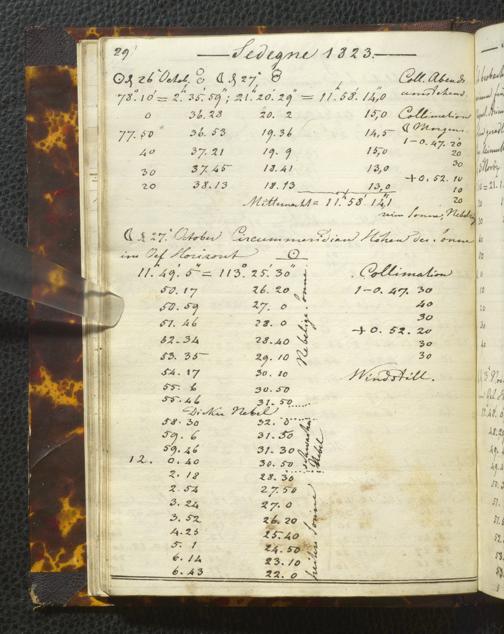 29 Sedegne 1823.
☉ d 26 Octob. ☾ d 27 Coll. Abends
78°.10' = 2h.35.59"; 21h.20.29" = 11h.58.14,0
0 36.23 20. 2 15,0 Collimation
77.50 36.53 19.36 14,5 Morgens
1-0.47.20
40 37.21 19. 9 15,0 20
30
30 37.45 18.41 13,0
20 38.13 18.13 13,0 +0.52.10
10
Mitternacht = 11h 58' 14,1 20
rein Sonne, Neblig
d 27. October Circummeridian Höhen der Sonne
im Oef Horizont ☉
11h.49'.5" = 113°.25.30" Collimation
50.17 26.20 1-0.47.30
50.59 27. 0 40
51.46 28. 0 30
52.34 28.40 +0.52.20
53.35 29.10 30
54.17 30.10 30
55. 6 30.50 Windstill.
55.46 31.50
Nebelige Sonne
Dicker Nebel
58.30 32. 0
59. 6 31.50
59.46 31.30
12. 0.40 30.50
Nebel
2.18 28.30
2.54 27.50
3.24 27.0
3.52 26.20
4.25 25.40
5. 1 24.50
6.14 23.10
6.43 22.0
heitere Sonne